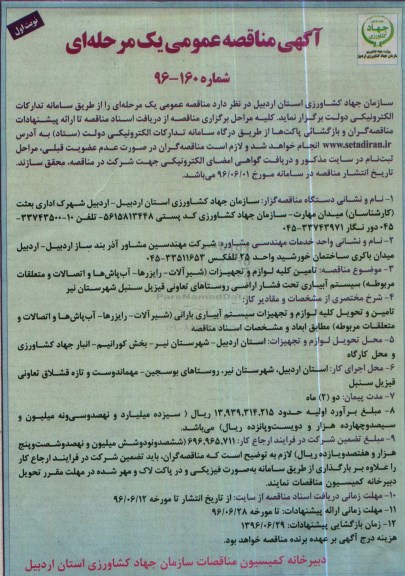 نوبت اول
جهاد کشاورزی
آگهی مناقصه عمومی یک مرحله‌ای
شماره ۱۶۰-۹۶
سازمان جهاد کشاورزی استان اردبیل در نظر دارد مناقصه عمومی یک مرحله‌ای را از طریق سامانه تدارکات
الکترونیکی دولت برگزار نماید. کلیه مراحل برگزاری مناقصه از دریافت اسناد مناقصه تا ارائه پیشنهادات
مناقصه‌گران و بازگشائی پاکت‌ها از طریق درگاه سامانه تدارکات الکترونیکی دولت (ستاد) به آدرس
www.setadiran.ir انجام خواهد شد و لازم است مناقصه‌گران در صورت عدم عضویت قبلی، مراحل
ثبت‌نام در سایت مذکور و دریافت گواهی امضای الکترونیکی جهت شرکت در مناقصه، محقق سازند.
تاریخ انتشار مناقصه در سامانه مورخ ۹۶/۰۶/۰۱ می‌باشد.
۱- نام و نشانی دستگاه مناقصه‌گزار: سازمان جهاد کشاورزی استان اردبیل- اردبیل شهرک اداری بعثت
(کارشناسان) میدان مهارت- سازمان جهاد کشاورزی کد پستی ۵۶۱۵۸۱۳۴۴۸- تلفن ۱۰-۳۳۷۴۳۵۰۰-
۰۴۵ دور نگار ۳۳۷۴۳۹۷۱-۰۴۵
۲- نام و نشانی واحد خدمات مهندسی مشاوره: شرکت مهندسین مشاور آذر بند ساز اردبیل- اردبیل
میدان باکری ساختمان خورشید واحد ۲۵ تلفکس ۳۳۵۱۱۶۵۳-۰۴۵
۳- موضوع مناقصه: تامین کلیه لوازم و تجهیزات (شیرآلات- رایزرها- آب‌پاش‌ها و اتصالات و متعلقات
مربوطه) سیستم آبیاری تحت فشار اراضی روستاهای تعاونی قیزیل سنبل شهرستان نیر
۴- شرح مختصری از مشخصات و مقادیر کار:
تامین و تحویل کلیه لوازم و تجهیزات سیستم آبیاری بارانی (شیرآلات- رایزرها- آب‌پاش‌ها و اتصالات و
متعلقات مربوطه) مطابق ابعاد و مشخصات اسناد مناقصه
۵- محل تحویل لوازم و تجهیزات: استان اردبیل- شهرستان نیر- بخش کورائیم- انبار جهاد کشاورزی
و محل کارگاه
۶- محل اجرای کار: استان اردبیل، شهرستان نیر، روستاهای یوسجین- مهماندوست و تازه قشلاق تعاونی
قیزیل سنبل
۷- مدت پیمان: دو (۲) ماه
۸- مبلغ برآورد اولیه حدود ۱۳,۹۳۹,۳۱۴,۲۱۵ ریال ( سیزده میلیارد و نهصدوسی‌ونه میلیون و
سیصدوچهارده هزار و دویست‌وپانزده ریال) می‌باشد.
۹- مبلغ تضمین شرکت در فرایند ارجاع کار: ۶۹۶,۹۶۵,۷۱۱ (ششصدونودوشش میلیون و نهصدوشصت‌وپنج
هزار و هفتصدویازده ریال) لازم به توضیح است که مناقصه‌گران، باید تضمین شرکت در فرایند ارجاع کار
را علاوه بر بارگذاری از طریق سامانه به‌صورت فیزیکی و در پاکت لاک و مهر شده در مهلت مقرر تحویل
دبیرخانه کمیسیون مناقصات نمایند.
۱۰- مهلت زمانی دریافت اسناد مناقصه از سایت: از تاریخ انتشار تا مورخه ۹۶/۰۶/۱۲
۱۱- مهلت زمانی ارائه پیشنهادات: تا مورخه ۹۶/۰۶/۲۸
۱۲- زمان بازگشایی پیشنهادات: ۱۳۹۶/۰۶/۲۹
هزینه درج آگهی بر عهده برنده مناقصه خواهد بود.
دبیرخانه کمیسیون مناقصات سازمان جهاد کشاورزی استان اردبیل